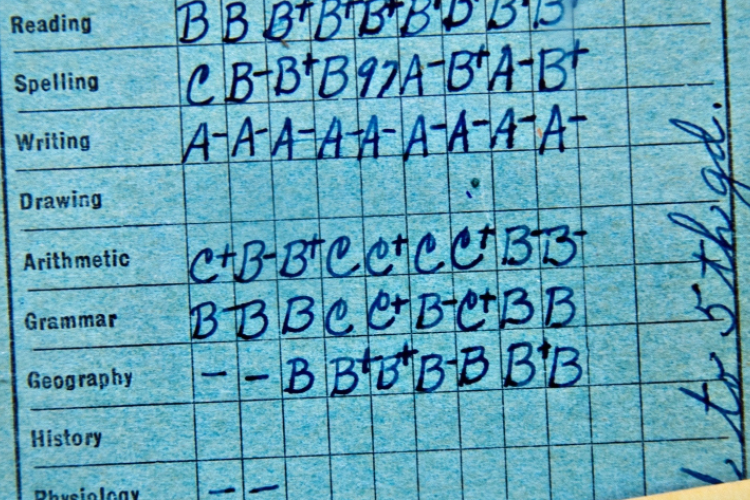 Reading B B B+ B+ B+ B B B B
Spelling C B- B+ B 97 A- B+ A- B+
Writing A- A- A- A- A- A- A- A- A-
Drawing
Arithmetic C+ B- B+ C C+ C C+ B- B-
Grammar B- B B C C+ B- C+ B B
Geography - - B B+ B+ B- B B+ B
History
Physiology - -
to 5th gd.